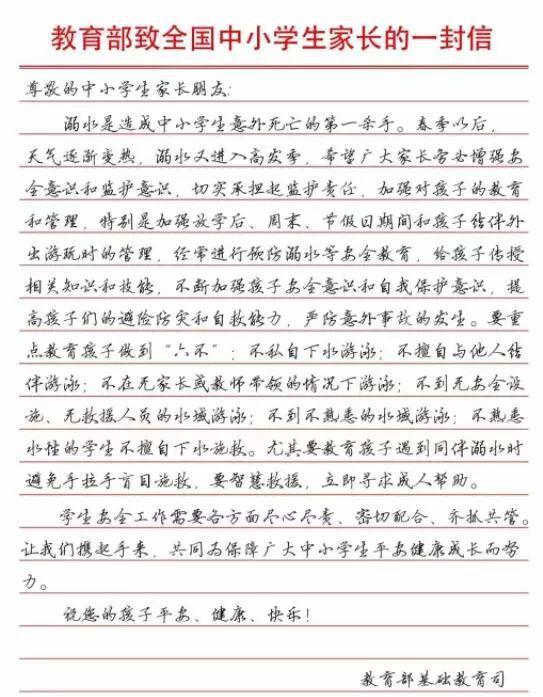 教育部致全国中小学生家长的一封信
尊敬的中小学生家长朋友:
溺水是造成中小学生意外死亡的第一杀手。春季以后，
天气逐渐变热，溺水又进入高发季，希望广大家长务必增强安
全意识和监护意识，切实承担起监护责任，加强对孩子的教育
和管理，特别是加强放学后、周末、节假日期间和孩子结伴外
出游玩时的管理，经常进行预防溺水等安全教育，给孩子传授
相关知识和技能，不断加强孩子安全意识和自我保护意识，提
高孩子们的避险防灾和自救能力，严防意外事故的发生。要重
点教育孩子做到“六不”：不私自下水游泳；不擅自与他人结
伴游泳；不在无家长或教师带领的情况下游泳；不到无安全设
施、无救援人员的水域游泳；不到不熟悉的水域游泳；不熟悉
水性的学生不擅自下水施救。尤其要教育孩子遇到同伴溺水时
避免手拉手盲目施救，要智慧救援，立即寻求成人帮助。
学生安全工作需要各方面尽心尽责、密切配合、齐抓共管。
让我们携起手来，共同为保障广大中小学生平安健康成长而努
力。
祝您的孩子平安、健康、快乐！
教育部基础教育司